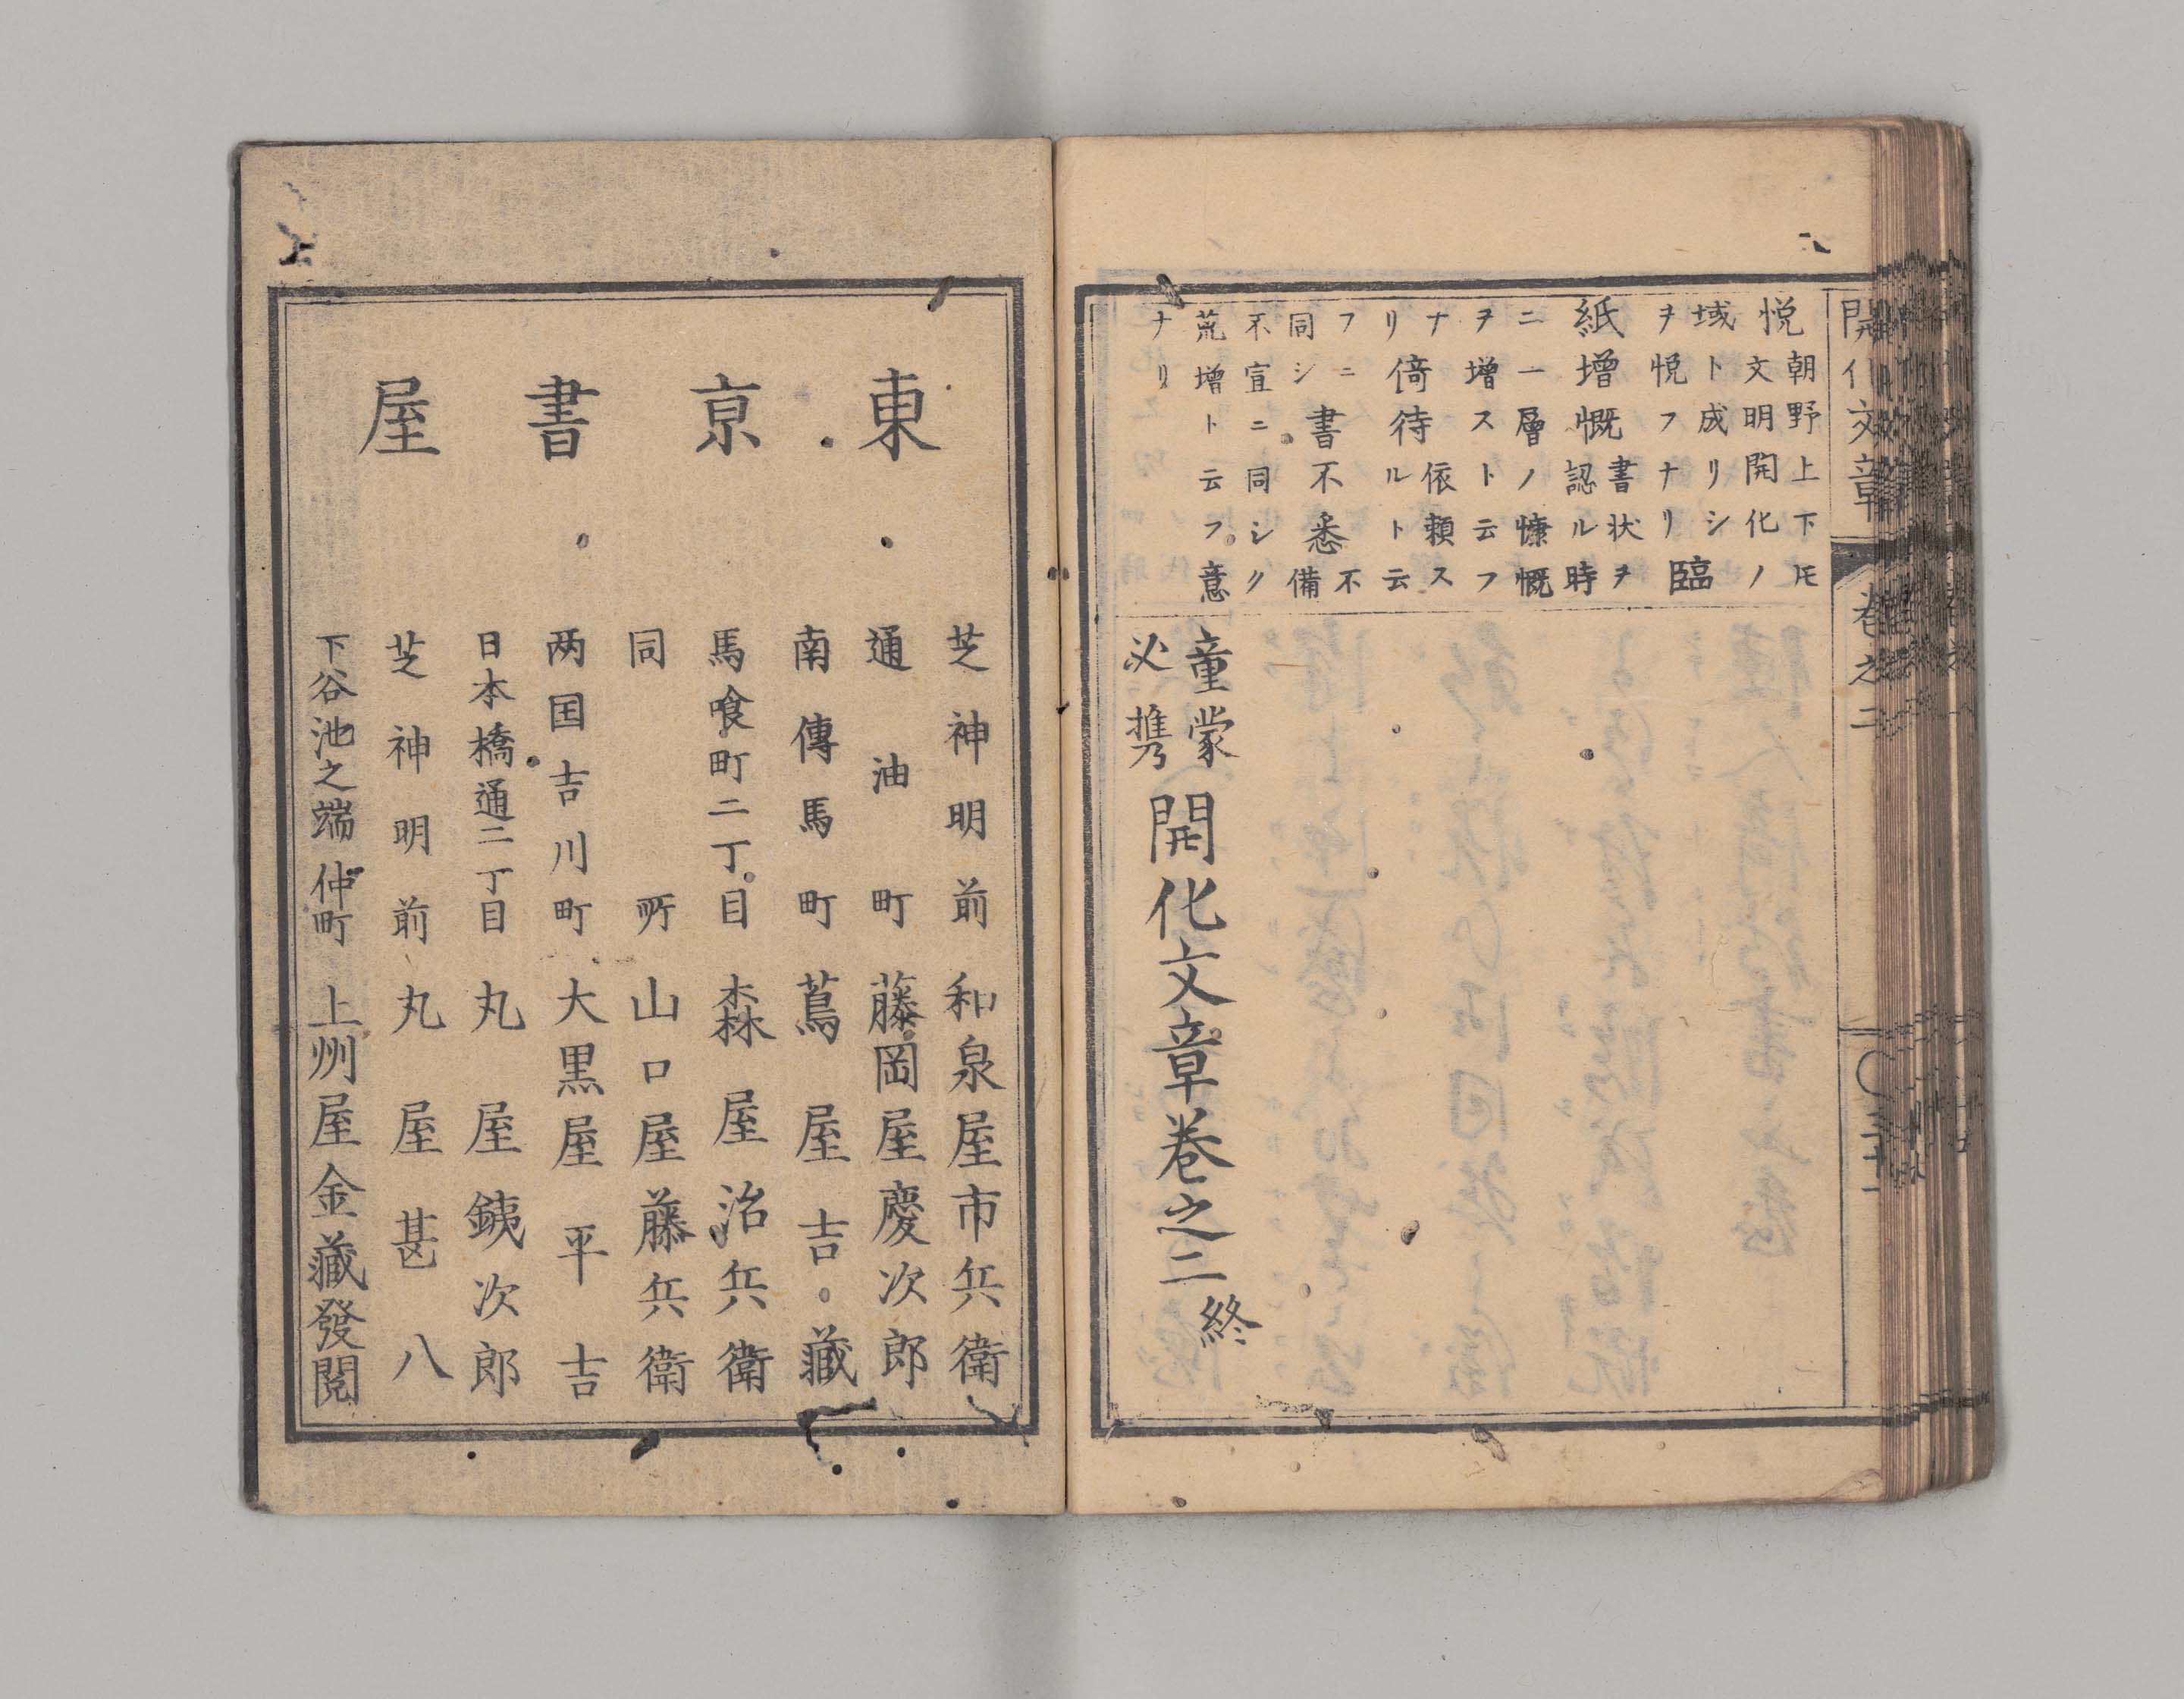 開化文章 卷之二
悦朝野上下𪜈
文明開化ノ
域ト成リシ
ヲ悦フナリ臨
紙増慨書状ヲ
認ル時
ニ一層ノ慷慨
ヲ増スト云フ
ナリ倚待依頼ス
ルト云
フニ同シ書不悉不備
不宣ニ同シク
荒増ト云フ意
ナリ
童蒙
必携
開化文章卷之二終
東京書屋
芝神明前 和泉屋市兵衛
通油町 藤岡屋慶次郎
南傳馬町 蔦屋吉藏
馬喰町二丁目 森屋治兵衛
同所 山口屋藤兵衛
两国吉川町 大黒屋平吉
日本橋通二丁目 丸屋銕次郎
芝神明前 丸屋甚八
下谷池之端仲町 上州屋金藏發閲